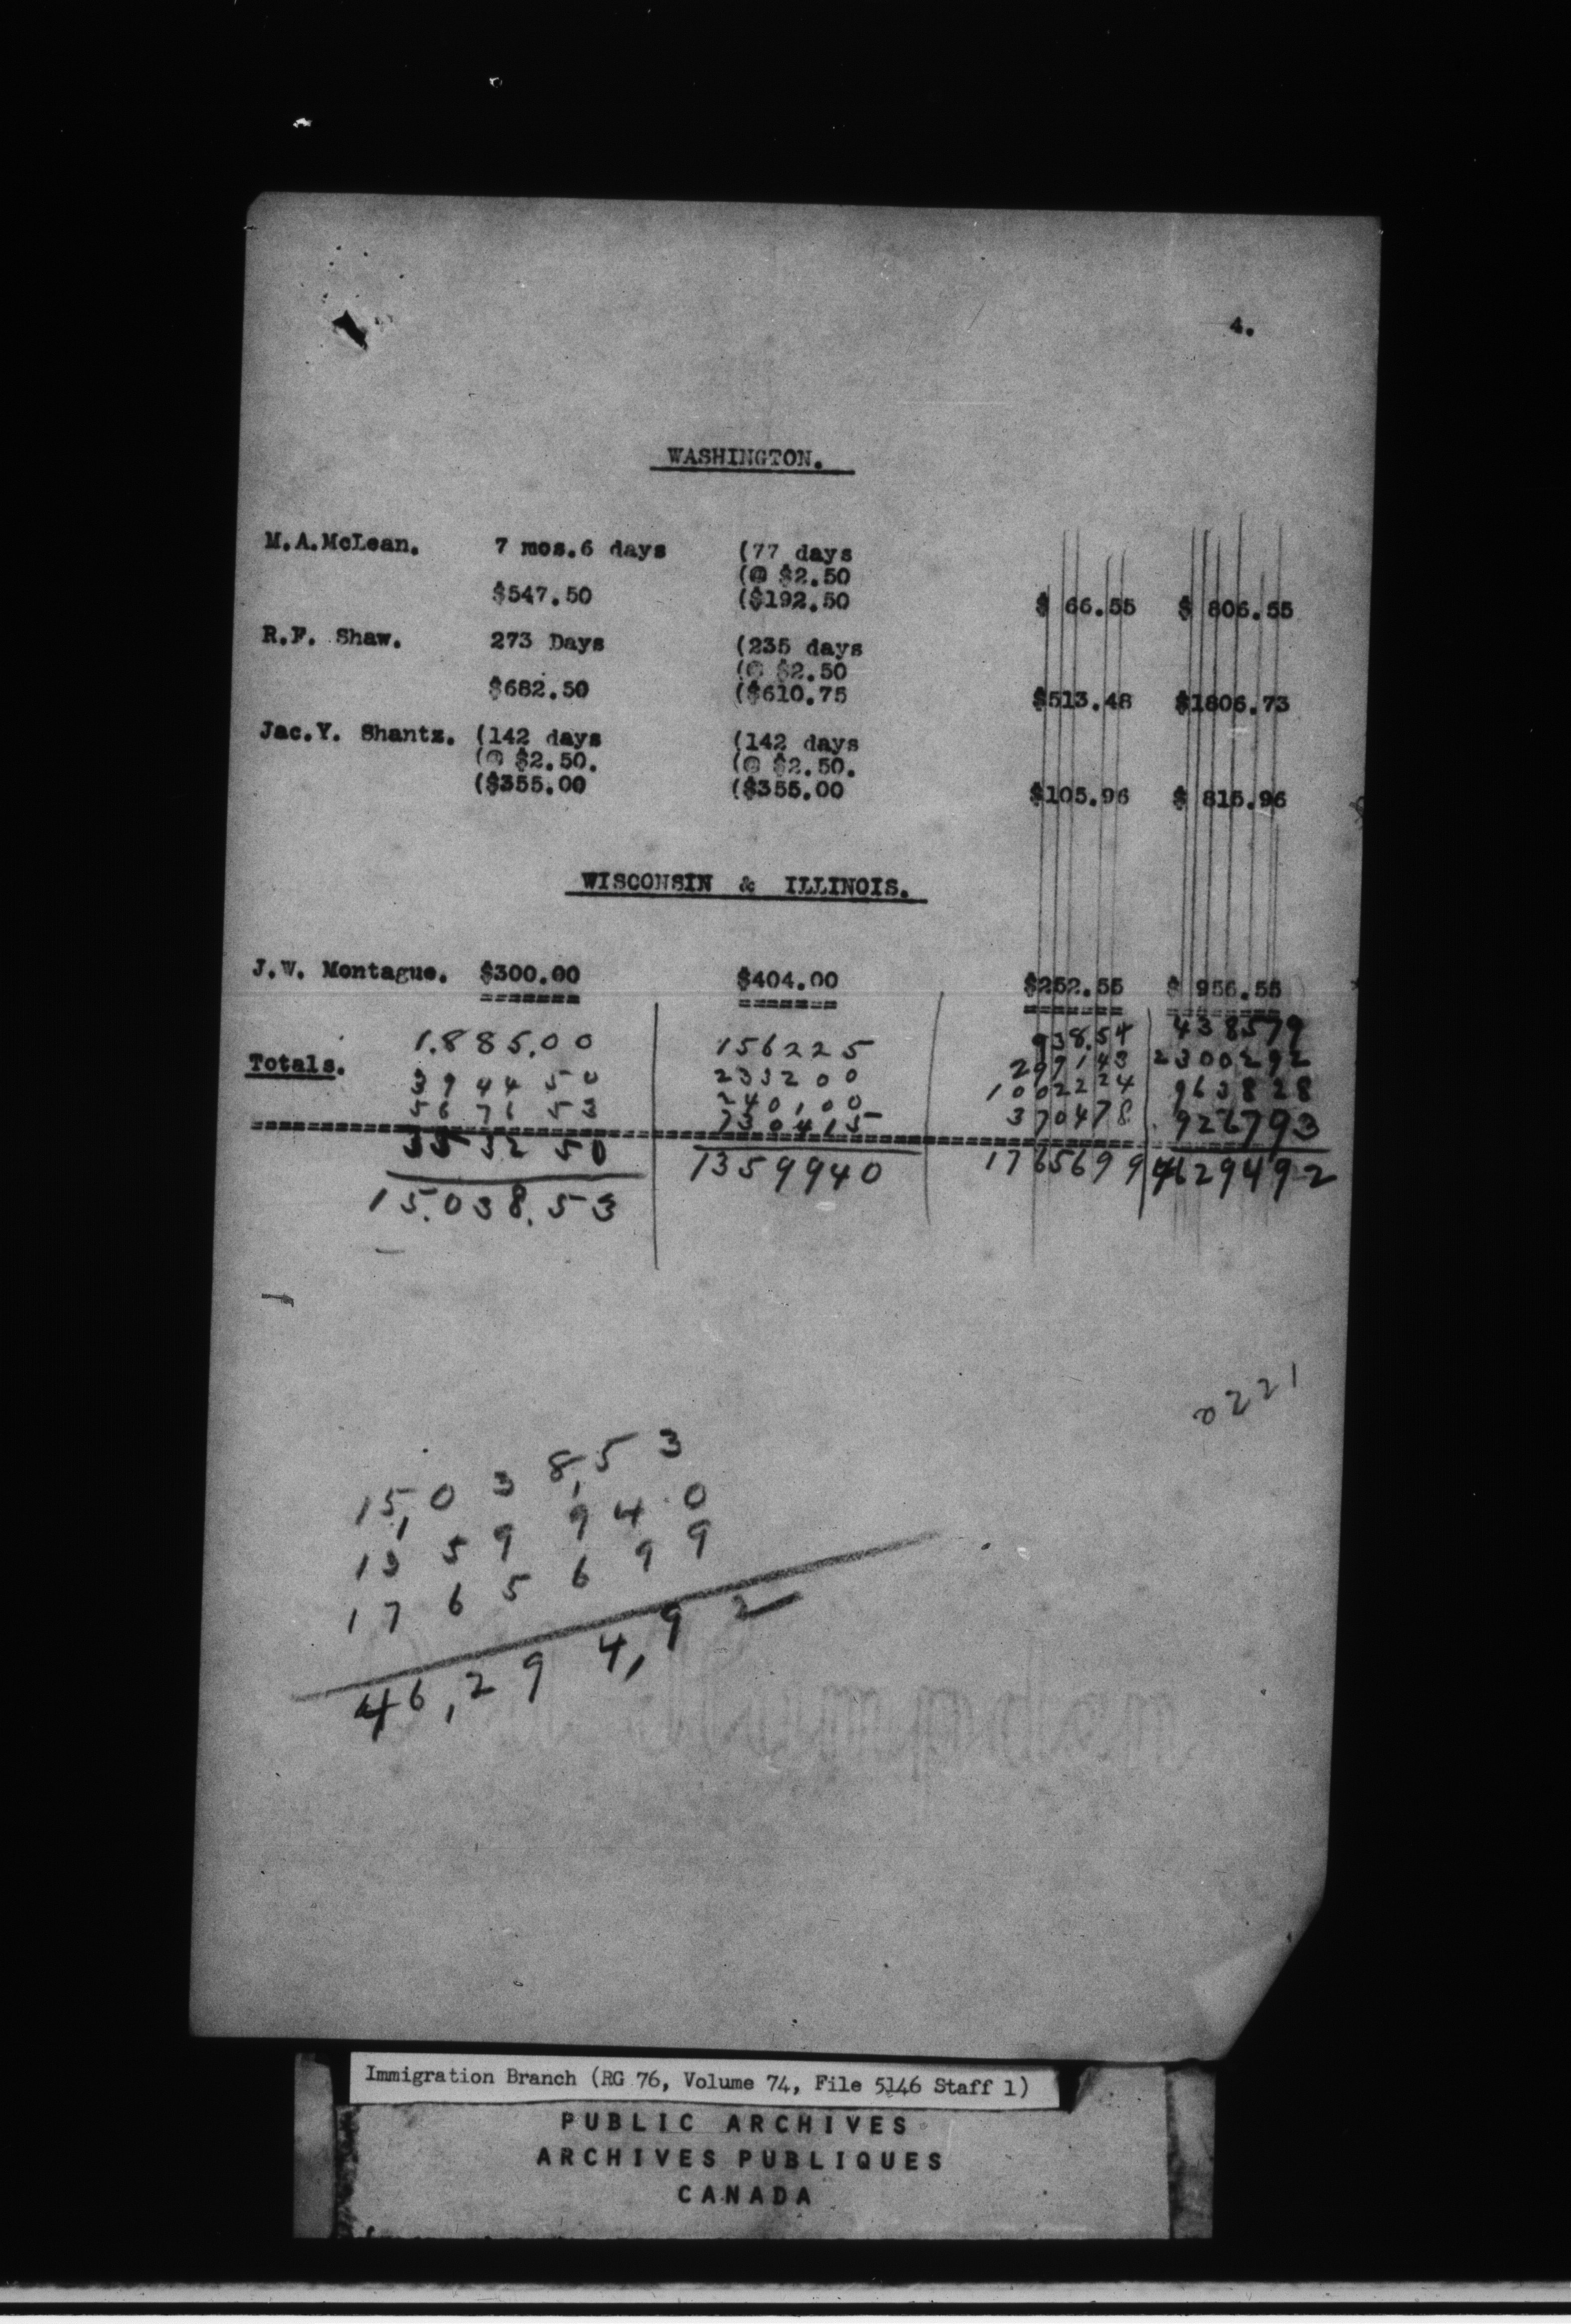 4.
WASHINGTON.
M.A.McLean. 7 mos.6 days (77 days
(@ $2.50
$547.50 ($192.50 $ 66.55 $ 806.55
R.F. Shaw. 273 Days (235 days
(@ $2.50
$682.50 ($610.75 $513.48 $1806.73
Jac.Y. Shantz. (142 days (142 days
(@ $2.50. (@ $2.50.
($355.00 ($355.00 $105.96 $ 815.96
WISCONSIN & ILLINOIS.
J.W. Montague. $300.00 $404.00 $252.55 $ 956.55
1.885.00 156225 938.54 438579
Totals. 394450 233200 299143 2300292
567653 240100 1002224 963828
730415 370478 926793
353250 1359940 1765699 4629492
15.038.53
0221
15,038,53
1359940
1765699
46,294,92
Immigration Branch (RG 76, Volume 74, File 5146 Staff 1)
PUBLIC ARCHIVES
ARCHIVES PUBLIQUES
CANADA